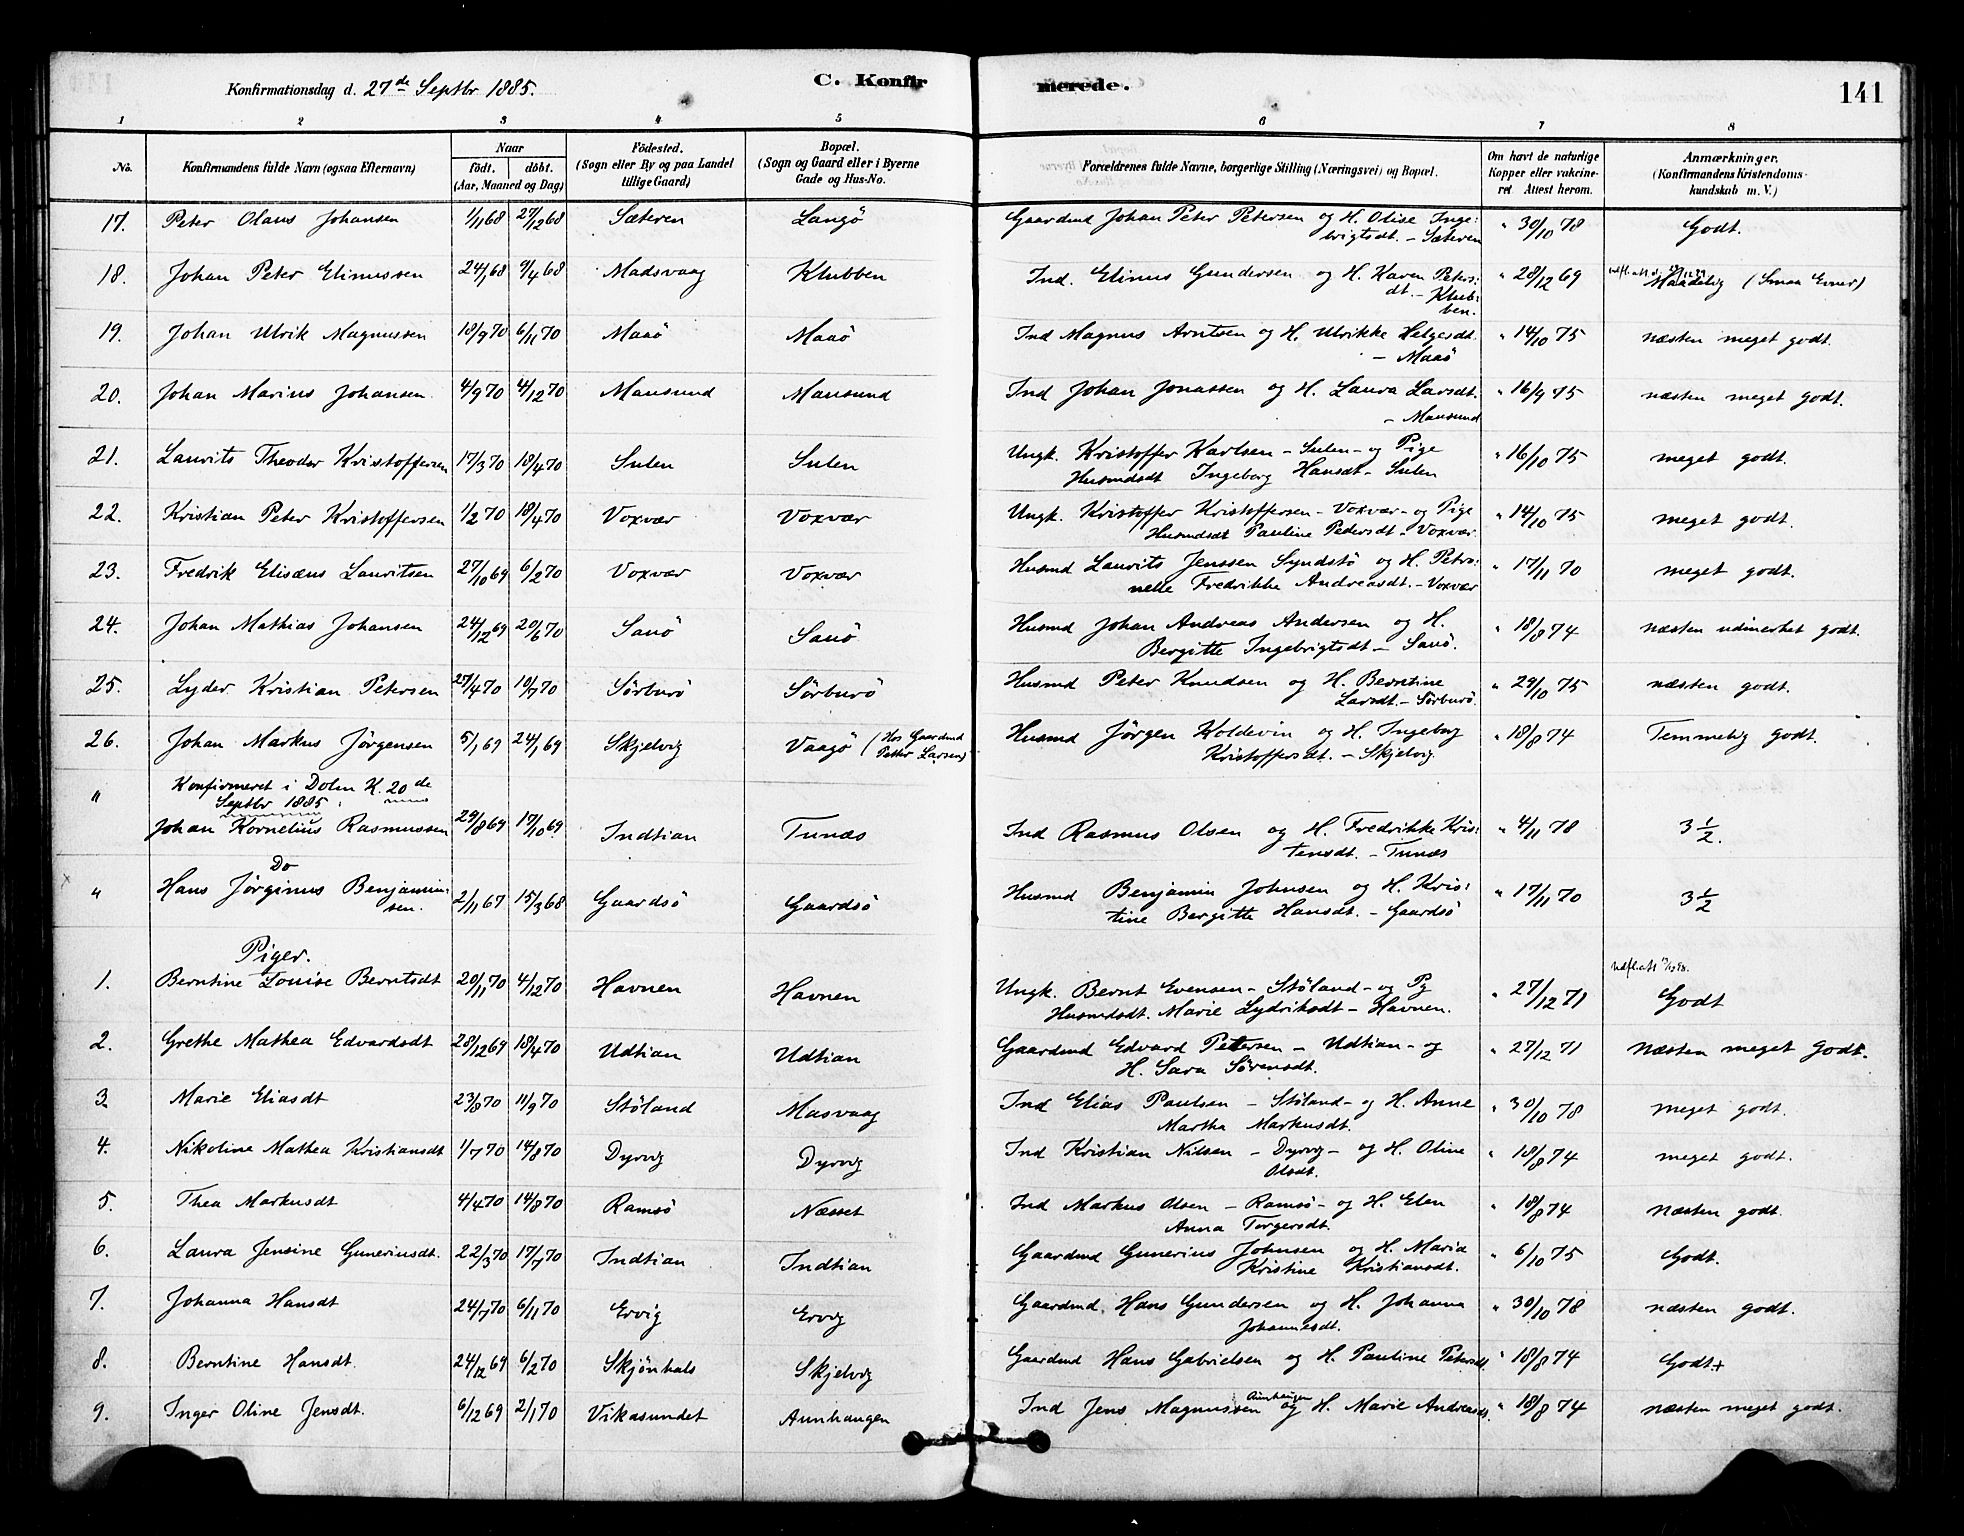 Konfirmationsdag d. 27de Septbr 1885.
C. Konfirmerede.
141
1 2 3 4 5 6 7 8
No. | Konfirmandens fulde Navn (ogsaa Efternavn) | Naar födt. döbt. (Aar, Maaned og Dag) | Födested. (Sogn eller By og paa Landet tillige Gaard) | Bopæl. (Sogn og Gaard eller i Byerne Gade og Hus-No. | Forældrenes fulde Navne, borgerlige Stilling (Næringsvei) og Bopæl. | Om havt de naturlige Kopper eller vakcineret Attest herom. | Anmærkninger. (Konfirmandens Kristendomskundskab m. V.)
17. Peter Olaus Johansen 1/11 68 27/12 68 Sæteren Langö Gaardmd Johan Peter Petersen og H. Olise Ingebrigtsdt. – Sæteren " 30/10 78 Godt.
18. Johan Peter Elinussen 24/1 68 9/4 68 Madsvaag Klubben Ind. Elinus Gundersen og H. Karen Petersdt. – Klubben. " 28/12 69 Maadelig (Smaa Evner)
19. Johan Ulrik Magnussen 18/9 70 6/11 70 Maaö Maaö Ind Magnus Arntsen og H. Ulrikke Helgesdt. – Maaö " 14/10 75 næsten meget godt.
20. Johan Marius Johansen 4/9 70 4/12 70 Mausund Mausund Ind Johan Jonassen og H. Laura Larsdt. – Mausund " 16/9 75 næsten meget godt.
21. Laurits Theodor Kristoffersen 17/3 70 18/4 70 Sulen Sulen Ungk. Kristoffer Karlsen – Sulen – og Pige Husmdsdt Ingeborg Hansdt – Sulen " 16/10 75 meget godt.
22. Kristian Peter Kristoffersen 1/2 70 18/4 70 Voxvær Voxvær Ungk. Kristoffer Kristoffersen – Voxvær – og Pige Husmdsdt Pauline Pedersdt – Voxvær " 14/10 75 meget godt.
23. Fredrik Elisæus Lauritsen 27/10 69 6/2 70 Voxvær Voxvær Husmd Laurits Jenssen Syndstö og H. Petronelle Fredrikke Andreasdt. – Voxvær " 17/11 70 meget godt.
24. Johan Mathias Johansen 24/12 69 20/6 70 Sauö Sauö Husmd Johan Andreas Andersen og H. Bergitte Ingebrigtsdt – Sauö. " 18/8 74 næsten udmerket godt.
25. Lyder Kristian Petersen 27/4 70 10/7 70 Sörburö Sörburö Husmd Peter Knudsen og H. Berntine Larsdt. – Sörburö. " 29/10 75 næsten godt.
26. Johan Markus Jörgensen 5/1 69 24/1 69 Skjelvig Vaagö (Hos Gaardmd Petter Larsen) Husmd Jörgen Koldevin og H. Ingeborg Kristoffersdt. – Skjelvig. " 18/8 74 Temmelig godt.
" Konfirmeret i Dolm K. 20de Septbr 1885
Johan Kornelius Rasmussen 29/8 69 17/10 69 Indtian Tunæs Ind Rasmus Olsen og H. Fredrikke Kristensdt. – Tunæs " 4/11 78 3 1/2.
" Do
Hans Jörginus Benjaminsen. 2/11 67 15/3 68 Gaardsö Gaardsö Husmd Benjamin Johnsen og H. Kristine Bergitte Hansdt. – Gaardsö " 17/11 70 3 1/2
Piger.
1. Berntine Louise Berntsdt 20/11 70 4/12 70 Havnen Havnen Ungk. Bernt Evensen – Stöland – og Pg Husmdsdt. Marie Lydriksdt – Havnen. " 27/12 71 Godt
2. Grethe Mathea Edvardsdt 28/12 69 18/4 70 Udtian Udtian Gaardmd Edvard Petersen – Udtian – og H. Sara Sörensdt. " 27/12 71 Næsten meget godt.
3. Marie Eliasdt 23/8 70 11/9 70 Stöland Masvaag Ind Elias Paulsen – Stöland – og H. Anne Martha Markusdt. " 30/10 78 meget godt.
4. Nikoline Mathea Kristiansdt 1/7 70 14/8 70 Dyrvig Dyrvig Ind Kristian Nilsen – Dyrvig – og H. Oline Olsdt. " 18/8 74 meget godt.
5. Thea Markusdt 4/4 70 14/8 70 Ramsö Næsset Ind Markus Olsen – Ramsö – og H. Elen Anna Torgersdt. " 18/8 74 næsten godt.
6. Laura Jensine Guneriusdt. 22/3 70 17/7 70 Indtian Indtian Gaardmd Gunerius Johnsen og H. Maria Kristine Kristiansdt. " 6/10 75 Godt.
7. Johanna Hansdt 24/7 70 6/11 70 Ervig Ervig Gaardmd. Hans Gundersen og H. Johanna Johannesdt. " 30/10 78 næsten godt.
8. Berntine Hansdt. 24/12 69 6/2 70 Skjönhals Skjelvig Gaardmd Hans Gabrielsen og H. Pauline Petersdt. " 18/8 74 Godt+
9. Inger Oline Jensdt. 6/12 69 2/1 70 Vikasundet Aunhaugen Ind Jens Magnussen Aunhaugen og H. Marie Andreasdt. " 18/8 74 næsten meget godt.